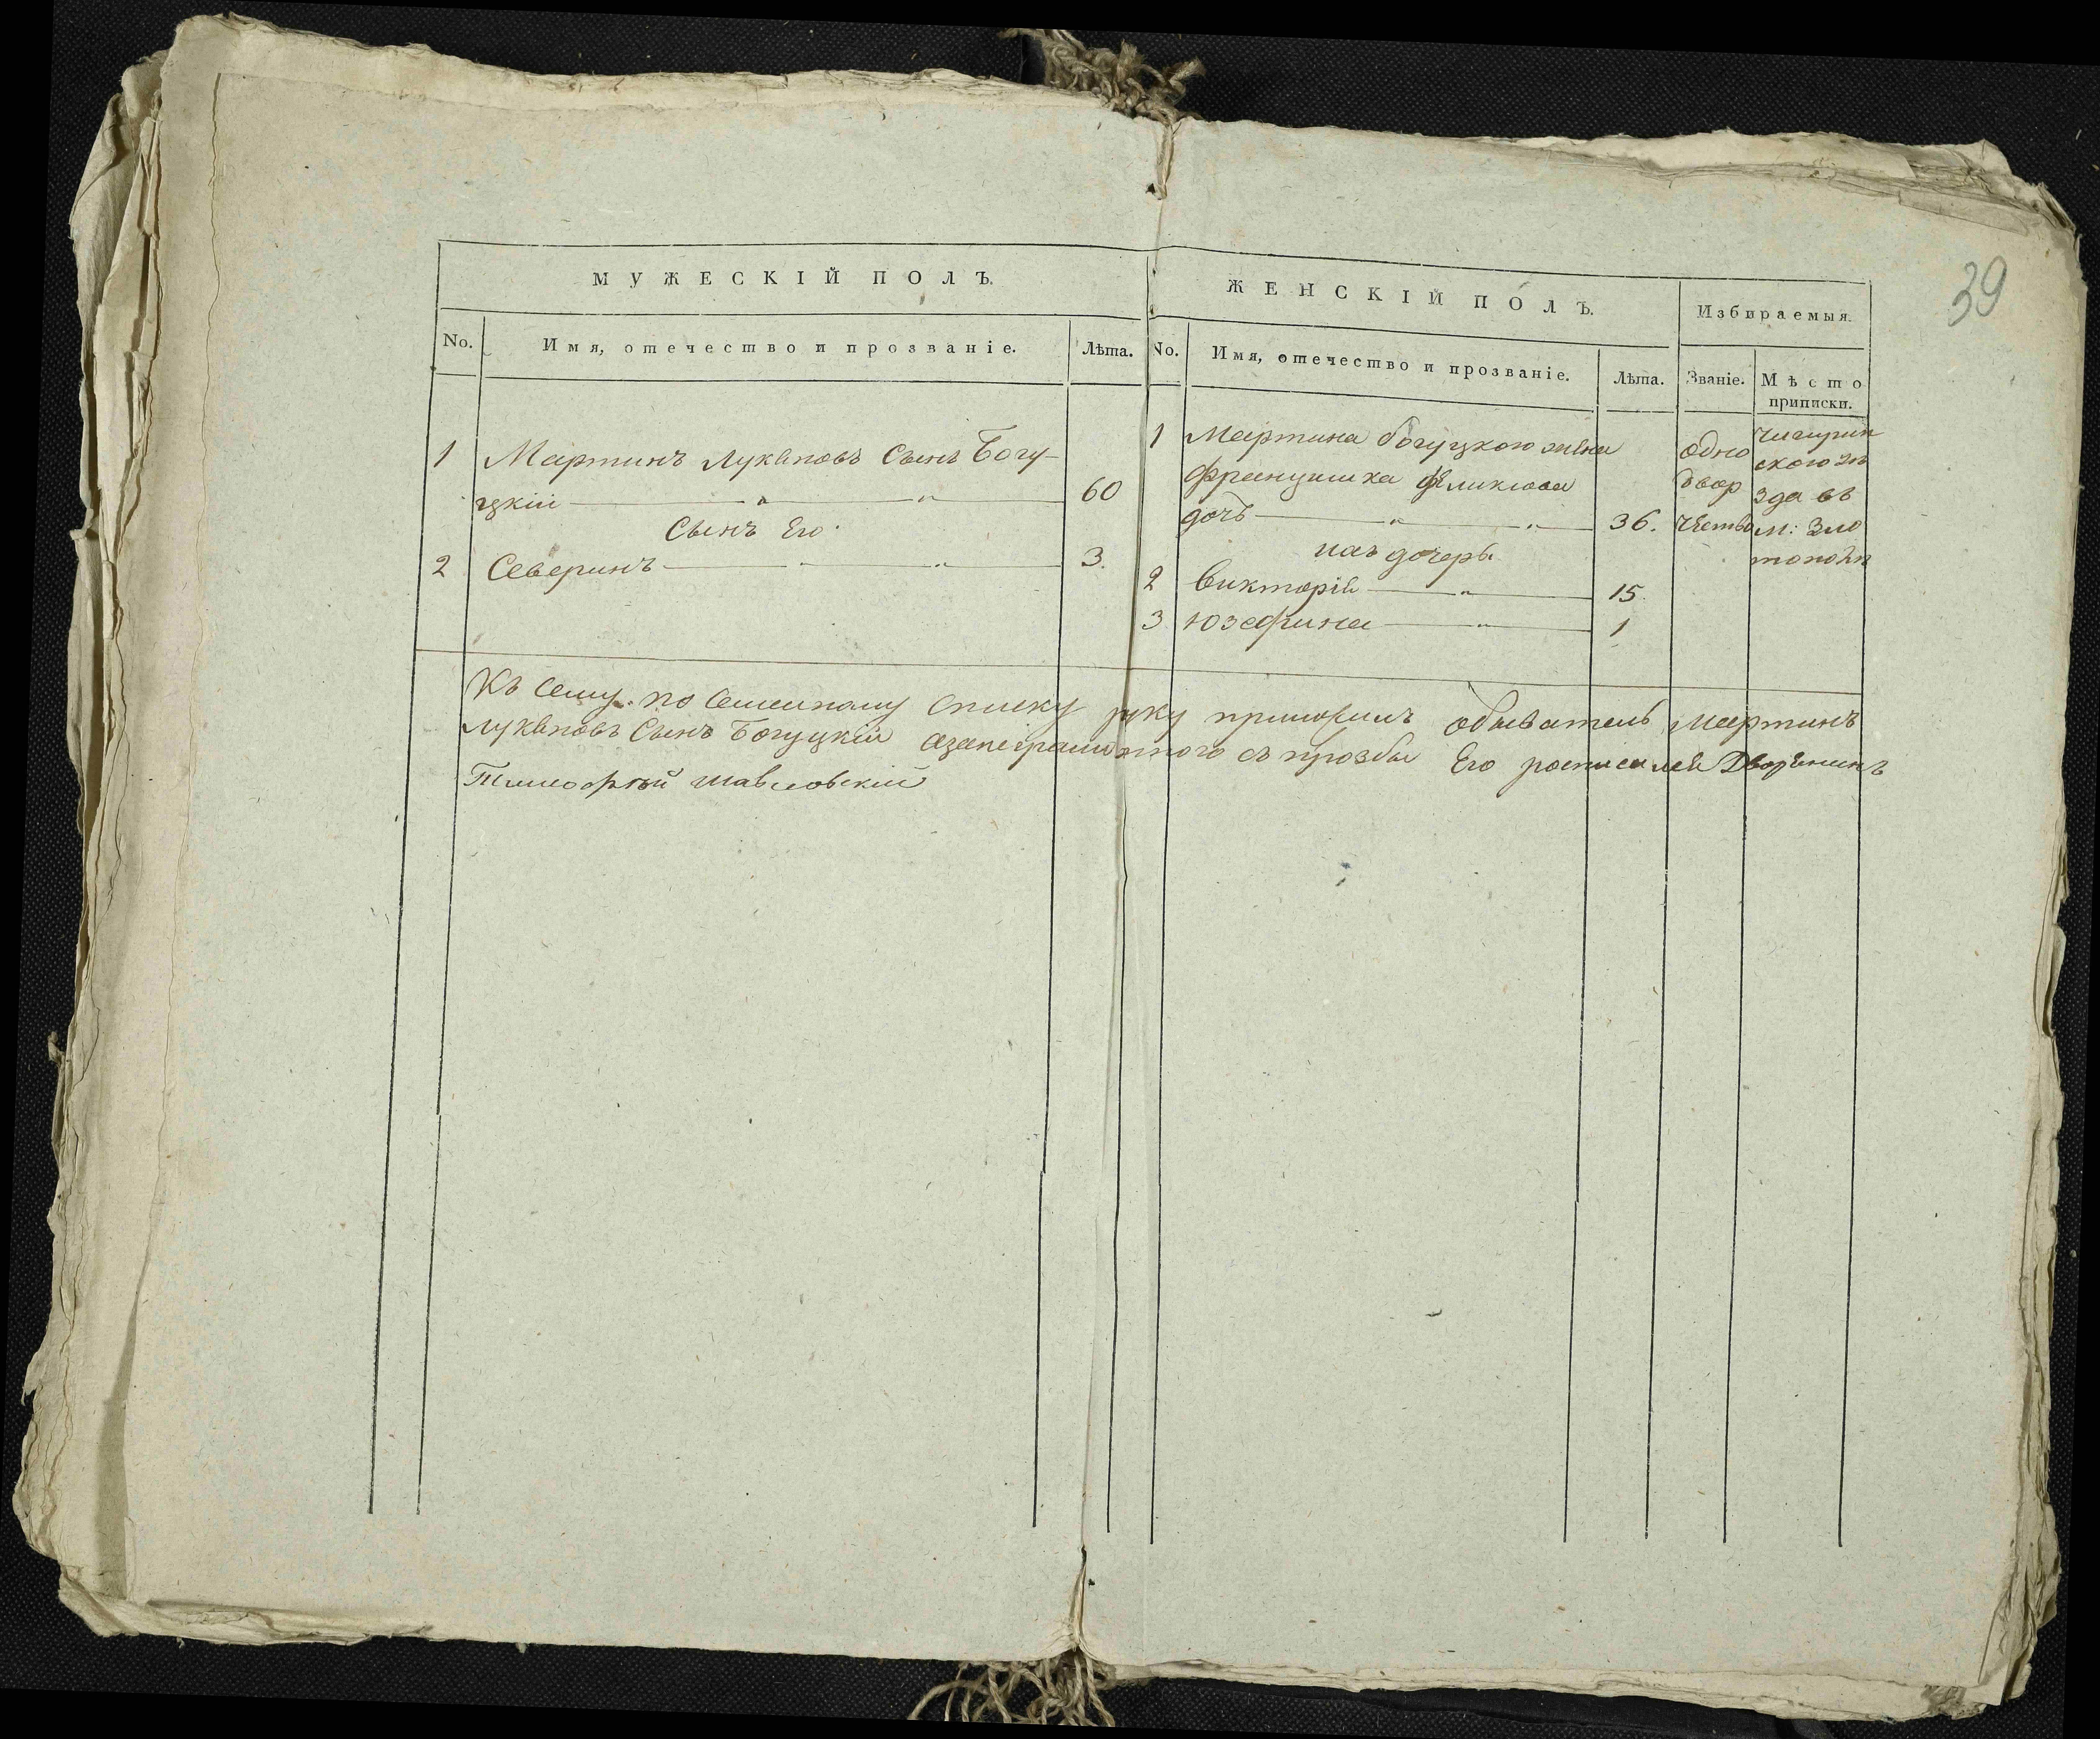 39
МУЖЕСКІЙ ПОЛЪ.
ЖЕНСКІЙ ПОЛЪ.
Избираемыя.
No.
Имя, отечество и прозваніе.
Лѣта.
No.
Имя, отечество и прозваніе.
Лѣта.
Званіе.
Мѣсто
приписки.
1 Мартинъ Лукьяновъ Сынъ Богу-
цкій 60
Сынъ Его
2 Северинъ 3.
1 Мартина богуцкого жена
францишка
дочь 36.
ихъ дочери
2 Викторія 15.
3 Юзефина 1
одно
двор
чество
чигирин
ского уѣ
зда въ
м: Зло
тополѣ
Къ Сему по Семейному Списку руку приложилъ обыватель Мартинъ
Лукьяновъ Сынъ Богуцкій азанеграмотного съ прозбы Его росписался Дворенинъ
Тимофтей